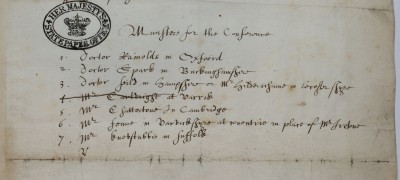 HER MAJESTY'S
STATE PAPER OFFICE
Ministers for the Conference
1. Doctor Rainolds in Oxford
2. Doctor Spark in Buckinghamshire
3. Doctor feild in Hampshire or Mr Hildersham in Leicestershyre
4. Mr Cartwright at Warwik
5. Mr Chattertone in Cambridge
6. Mr fenne in Warwikshyre at coventrie in place of Mr
7. Mr knewstubbs in Suffolk